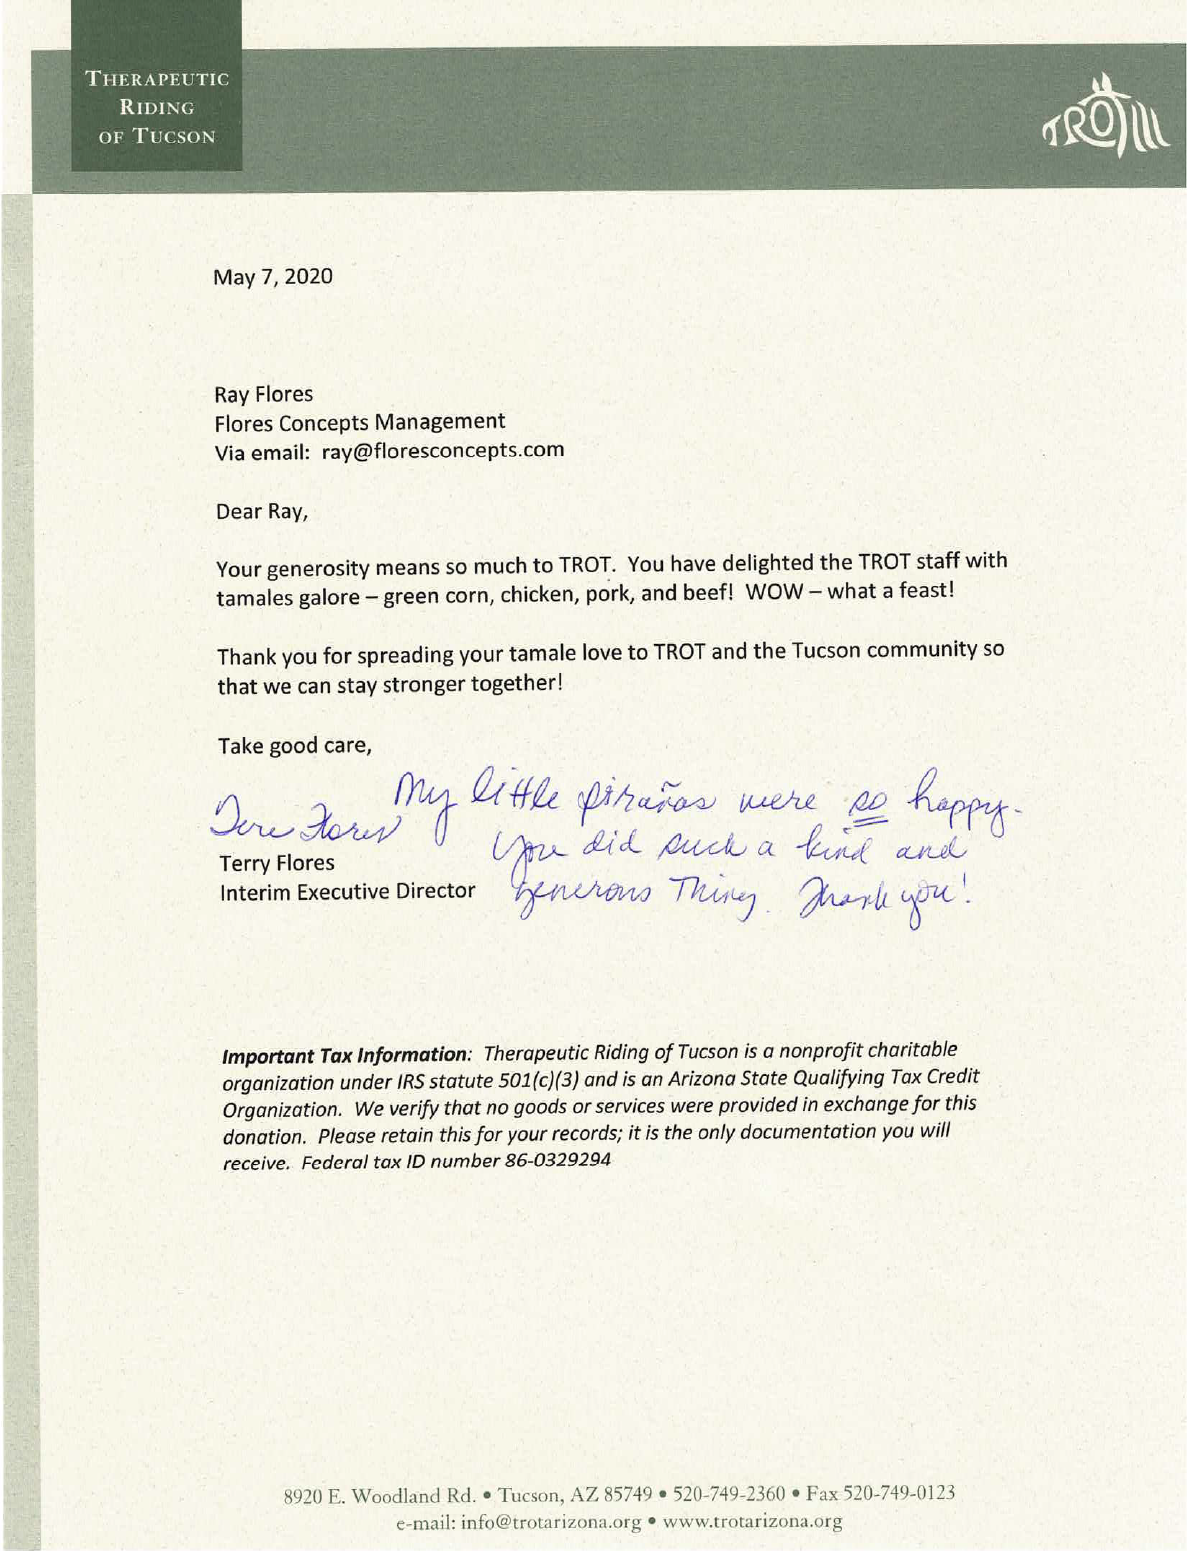 THERAPEUTIC
RIDING
OF TUCSON
TROT
May 7, 2020
Ray Flores
Flores Concepts Management
Via email: ray@floresconcepts.com
Dear Ray,
Your generosity means so much to TROT. You have delighted the TROT staff with
tamales galore – green corn, chicken, pork, and beef! WOW – what a feast!
Thank you for spreading your tamale love to TROT and the Tucson community so
that we can stay stronger together!
Take good care,
My little pirañas were so happy.
You did such a kind and
generous Thing. Thank you!
Flores
Terry Flores
Interim Executive Director
Important Tax Information: Therapeutic Riding of Tucson is a nonprofit charitable
organization under IRS statute 501(c)(3) and is an Arizona State Qualifying Tax Credit
Organization. We verify that no goods or services were provided in exchange for this
donation. Please retain this for your records; it is the only documentation you will
receive. Federal tax ID number 86-0329294
8920 E. Woodland Rd. • Tucson, AZ 85749 • 520-749-2360 • Fax 520-749-0123
e-mail: info@trotarizona.org • www.trotarizona.org